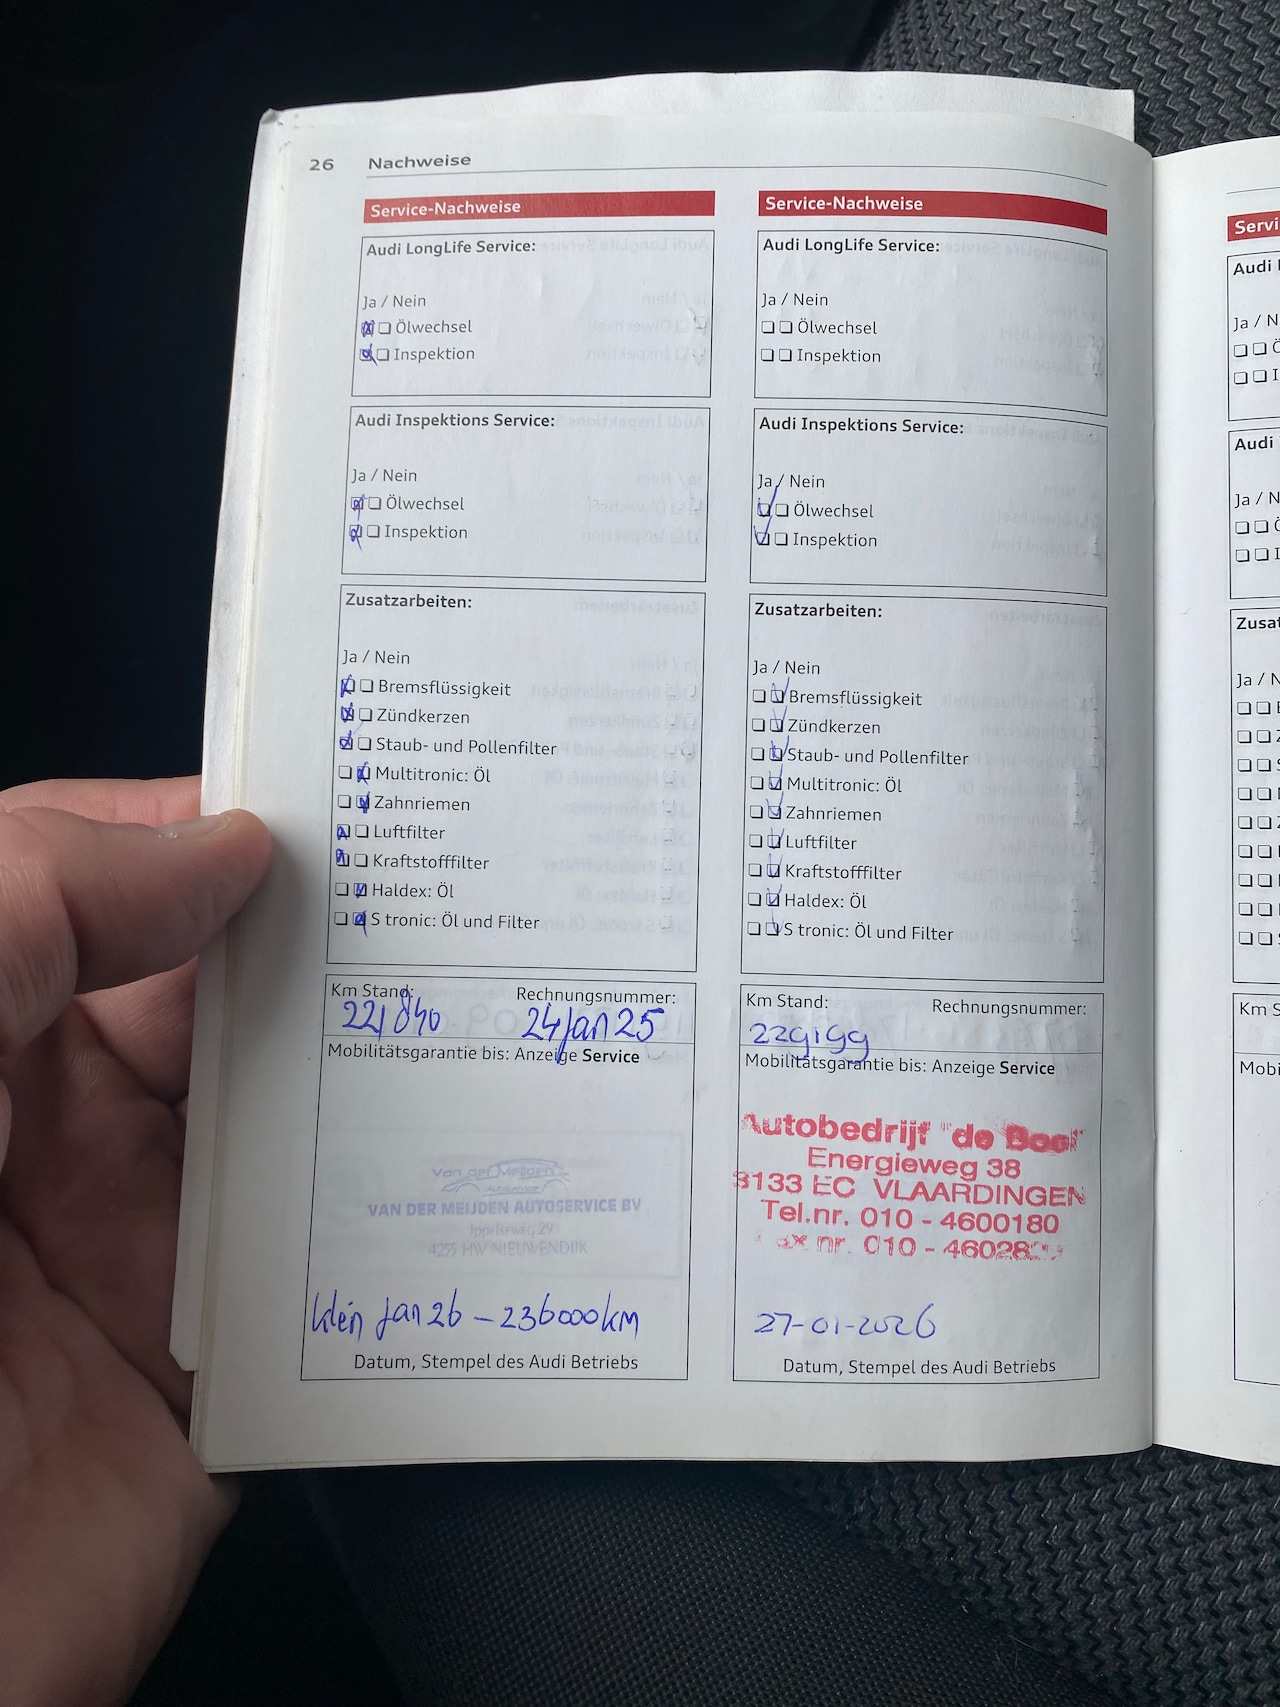 26 Nachweise
Service-Nachweise
Audi LongLife Service:
Ja / Nein
Ölwechsel
Inspektion
Audi Inspektions Service:
Ja / Nein
Ölwechsel
Inspektion
Zusatzarbeiten:
Ja / Nein
Bremsflüssigkeit
Zündkerzen
Staub- und Pollenfilter
Multitronic: Öl
Zahnriemen
Luftfilter
Kraftstofffilter
Haldex: Öl
S tronic: Öl und Filter
Km Stand: Rechnungsnummer:
221840 24 jan 25
Mobilitätsgarantie bis: Anzeige Service
Van der Meijden
VAN DER MEIJDEN AUTOSERVICE BV
29
4255 HW NIEUWENDIJK
klein jan 26 - 236000km
Datum, Stempel des Audi Betriebs
Service-Nachweise
Audi LongLife Service:
Ja / Nein
Ölwechsel
Inspektion
Audi Inspektions Service:
Ja / Nein
Ölwechsel
Inspektion
Zusatzarbeiten:
Ja / Nein
Bremsflüssigkeit
Zündkerzen
Staub- und Pollenfilter
Multitronic: Öl
Zahnriemen
Luftfilter
Kraftstofffilter
Haldex: Öl
S tronic: Öl und Filter
Km Stand: Rechnungsnummer:
229199
Mobilitätsgarantie bis: Anzeige Service
Autobedrijf "de
Energieweg 38
3133 EC VLAARDINGEN
Tel.nr. 010 - 4600180
nr. 010 -
27-01-2026
Datum, Stempel des Audi Betriebs
Audi
Ja / N
Audi
Ja / N
Ja / N
Km S